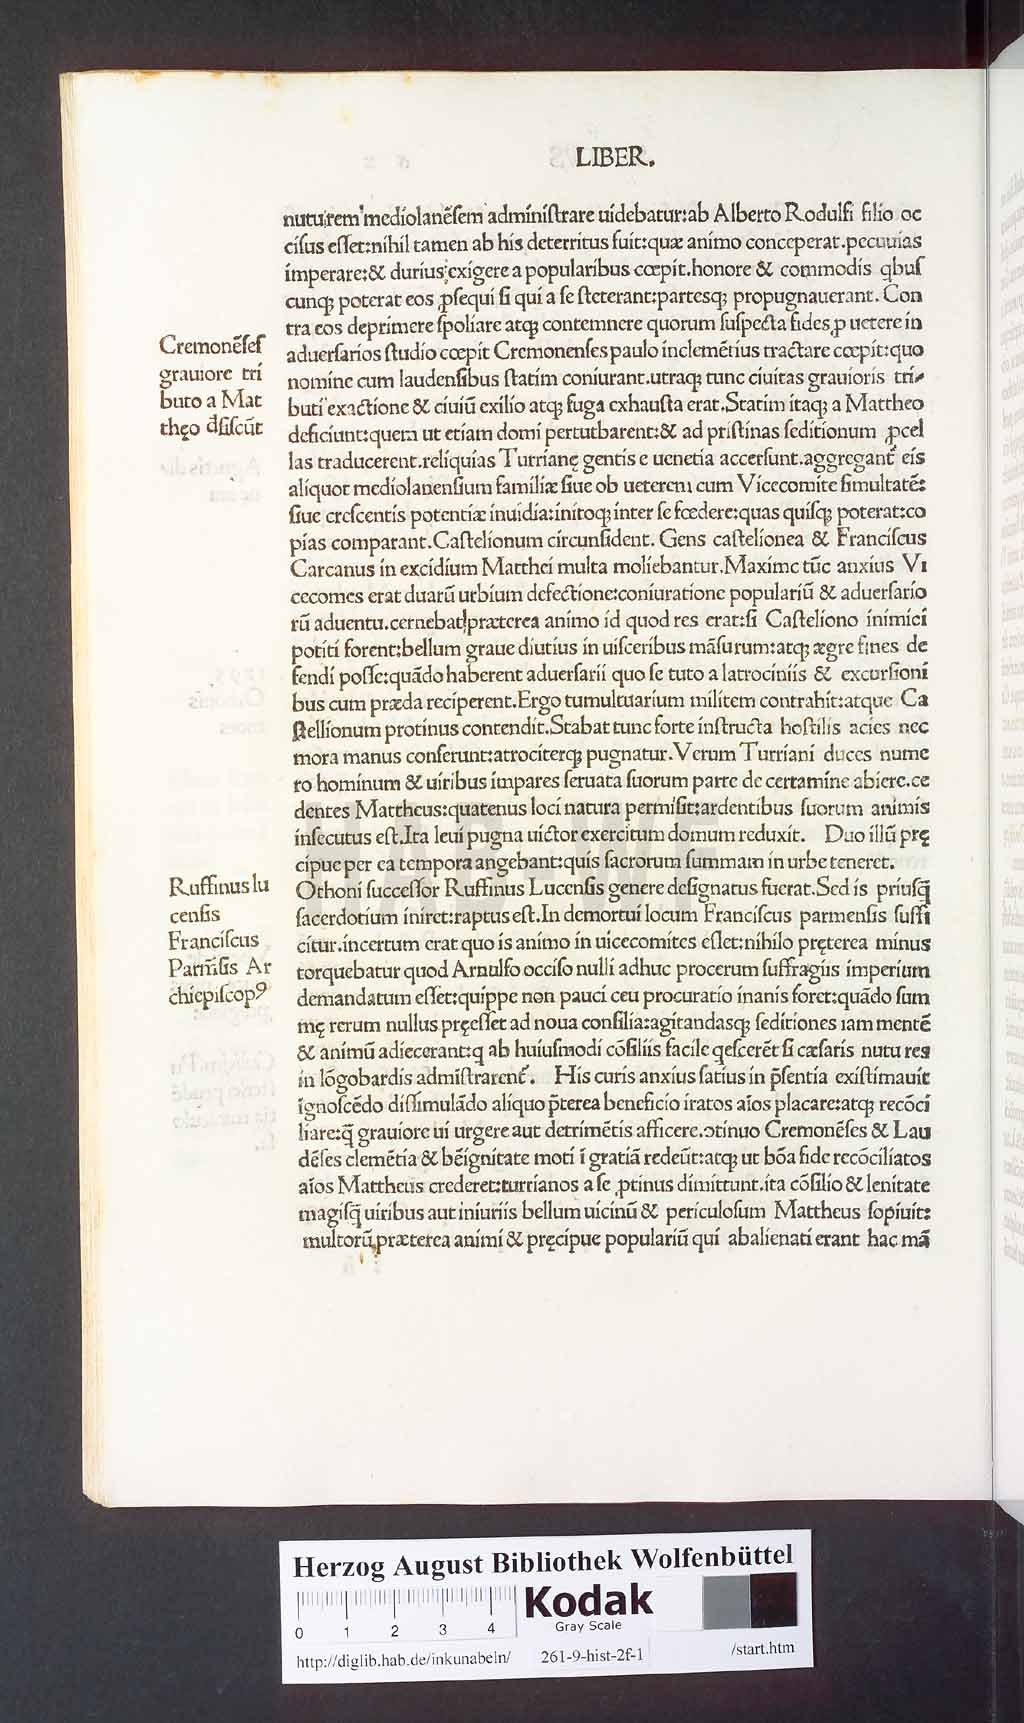 LIBER.
nutu rem mediolanēſem adminiſtrare uidebatur:ab Alberto Rodulfi filio oc
ciſus eſſet:nihil tamen ab his deterritus fuit:quæ animo conceperat.pecunias
imperare:& durius exigere a popularibus cœpit.honore & commodis qbuſ
cunqꝫ poterat eos ꝓſequi ſi qui a ſe ſteterant:partesqꝫ propugnauerant. Con
tra eos deprimere ſpoliare atqꝫ contemnere quorum ſuſpecta fides ꝓ uetere in
aduerſarios ſtudio cœpit Cremonenſes paulo inclemētius tractare cœpit:quo
nomine cum laudenſibus ſtatim coniurant.utraqꝫ tunc ciuitas grauioris tri-
buti exactione & ciuiū exilio atqꝫ fuga exhauſta erat.Statim itaqꝫ a Mattheo
deficiunt:quem ut etiam domi pertutbarent:& ad priſtinas ſeditionum ꝓcel
las traducerent.reliquias Turrianę gentis e uenetia accerſunt.aggregant̄ eis
aliquot mediolanenſium familiæ ſiue ob ueterem cum Vicecomite ſimultatē:
ſiue creſcentis potentiæ inuidia:initoqꝫ inter ſe fœdere:quas quiſqꝫ poterat:co
pias comparant.Caſtelionum circunſident. Gens caſtelionea & Franciſcus
Carcanus in excidium Matthei multa moliebantur.Maxime tūc anxius Vi
cecomes erat duarū urbium defectione:coniuratione populariū & aduerſario
rū aduentu.cernebat præterea animo id quod res erat:ſi Caſteliono inimici
potiti forent:bellum graue diutius in uiſceribus māſurum:atqꝫ ægre fines de
fendi poſſe:quādo haberent aduerſarii quo ſe tuto a latrociniis & excurſioni
bus cum præda reciperent.Ergo tumultuarium militem contrahit:atque Ca
ſtellionum protinus contendit.Stabat tunc forte inſtructa hoſtilis acies nec
mora manus conſerunt:atrociterqꝫ pugnatur.Verum Turriani duces nume
ro hominum & uiribus impares ſeruata ſuorum parte de certamine abiere.ce
dentes Mattheus:quatenus loci natura permiſit:ardentibus ſuorum animis
inſecutus eſt.Ita leui pugna uictor exercitum domum reduxit. Duo illū prę
cipue per ea tempora angebant:quis ſacrorum ſummam in urbe teneret.
Othoni ſucceſſor Ruffinus Lucenſis genere deſignatus fuerat.Sed is priuſq̄
ſacerdotium iniret:raptus eſt.In demortui locum Franciſcus parmenſis ſuffi
citur.incertum erat quo is animo in uicecomites eſſet:nihilo pręterea minus
torquebatur quod Arnulfo occiſo nulli adhuc procerum ſuffragiis imperium
demandatum eſſet:quippe non pauci ceu procuratio inanis foret:quādo ſum
mę rerum nullus pręeſſet ad noua conſilia:agitandasqꝫ ſeditiones iam mentē
& animū adiecerant:q ab huiuſmodi cōſiliis facile qeſcerēt ſi cæſaris nutu res
in lōgobardis admiſtrarent̄. His curis anxius ſatius in p̄ſentia exiſtimauit
ignoſcēdo diſſimulādo aliquo p̄terea beneficio iratos aīos placare:atqꝫ recōci
liare:q̄ grauiore ui urgere aut detrimētis afficere.ↄtinuo Cremonēſes & Lau
dēſes clemētia & bēignitate moti ī gratiā redeūt:atqꝫ ut bōa fide recōciliatos
aīos Mattheus crederet:turrianos a ſe ꝓtinus dimittunt.ita cōſilio & lenitate
magiſq̄ uiribus aut iniuriis bellum uicinū & periculoſum Mattheus ſopiuit:
multorū præterea animi & pręcipue populariū qui abalienati erant hac mā
Cremonēſeſ
grauiore tri
buto a Mat
thęo dſiſcūt
Ruffinus lu
cenſis
Franciſcus
Parm̄ſis Ar
chiepiſcopꝰ
HAB-WF
Herzog August Bibliothek Wolfenbüttel
0 1 2 3 4
Kodak
Gray Scale
http://diglib.hab.de/inkunabeln/ 261-9-hist-2f-1 /start.htm